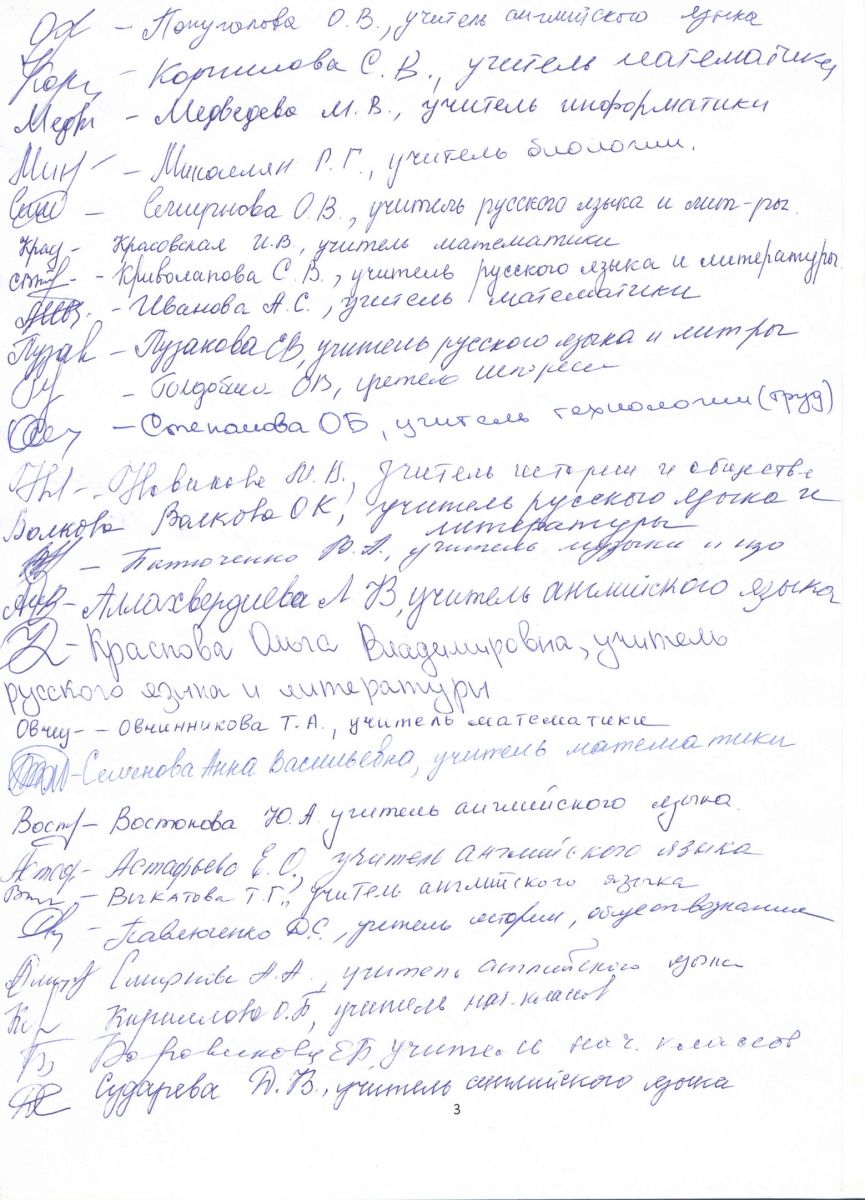 – Попугалова О.В., учитель английского языка
Корн – Корнилова С.В., учитель математики
Медв – Медведева М.В., учитель информатики
– Микаелян Г.Г., учитель биологии.
– Смирнова О.В., учитель русского языка и лит-ры.
Крас – Красовская И.В., учитель математики
– Криволапова С.В., учитель русского языка и литературы.
– Иванова А.С., учитель математики
Пузак – Пузакова ЕВ, учитель русского языка и литры
– Голдобина ОВ, учитель истории
– Степанова ОБ, учитель технологии (труд)
– Новикова М.В., учитель истории и обществ
Волкова Волкова О К, учитель русского языка и
литературы
– учитель музыки и изо
– Аллахвердиева Л В, учитель английского языка
– Краснова Ольга Владимировна, учитель
русского языка и литературы
Овчи – Овчинникова Т.А., учитель математики
– Семенова Анна Васильевна, учитель математики
Вост – Востокова Ю.А. учитель английского языка.
Астаф – Астафьева Е.О., учитель английского языка
– Вычкатова Т.Г., учитель английского языка
– Павлюченко Д.С., учитель истории, обществознания
Смирнова А.А., учитель английского языка
Кириллова О.Б, учитель нач. классов
Боровикова ЕВ учитель нач. классов
Сударева Д.В., учитель английского языка
3